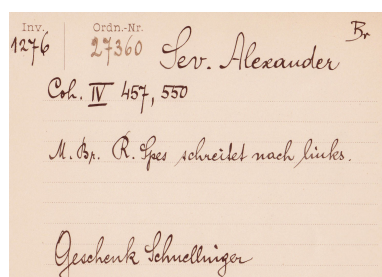 Inv. Ordn.-Nr. Br
1276 27360 Sev. Alexander
Coh. IV 457, 550
M. Br. R. Spes schreitet nach links.
Geschenk Schnellinger